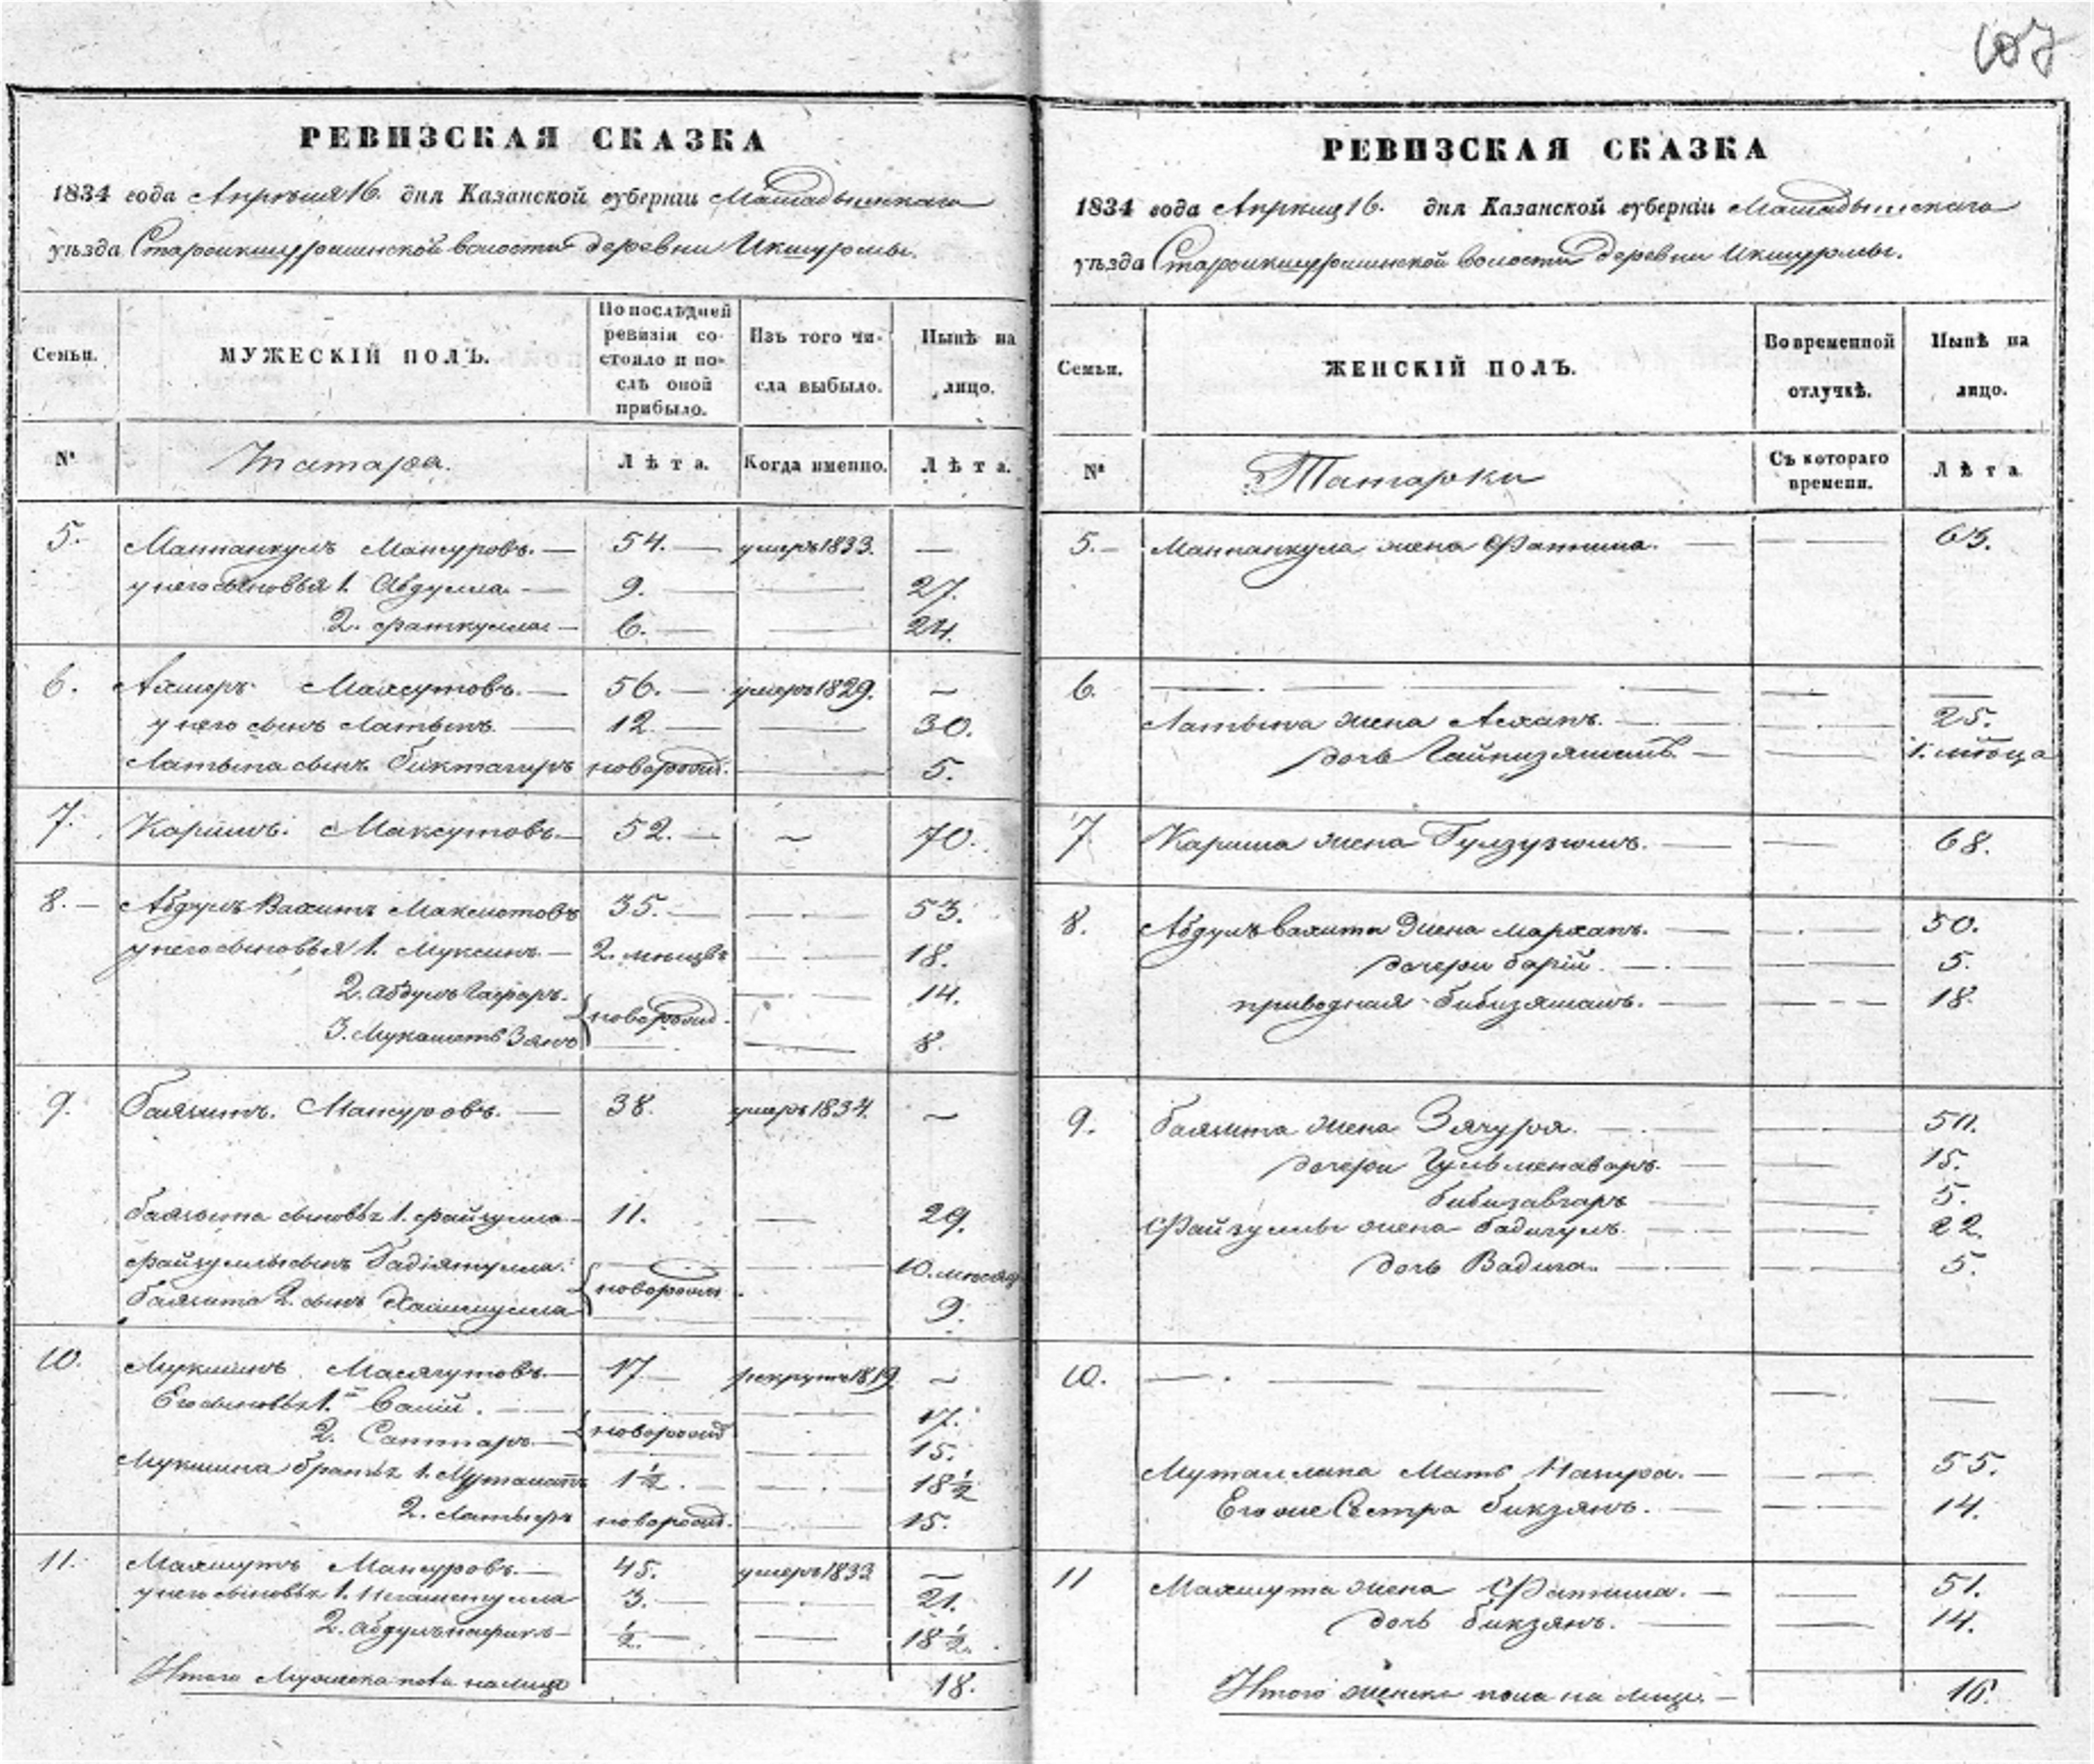 107
РЕВИЗСКАЯ СКАЗКА
1834 года Апрѣля 16. дня Казанской губерніи Мамадышскаго
уѣзда Староикшурминской волости деревни Икшурмы.
Семьи.
МУЖЕСКІЙ ПОЛЪ.
По послѣдней ревизіи со-
стояло и по-
слѣ оной
прибыло.
Изъ того чи-
сла выбыло.
Нынѣ на
лицо.
№
Татара.
Лѣта.
Когда именно.
Лѣта.
5. Маннанкулъ Мансуровъ. — 54. — умеръ 1833. —
у него сыновья 1. Абдулла — 9. — — 27.
2. Фаткулла — 6. — — 24.
6. Максутовъ. — 56. — умеръ 1829. —
у него сынъ Латыпъ — 12. — — 30.
Латыпа сынъ Биктагиръ новорожд. — 5.
7. Каримъ. Максутовъ — 52. — — 70.
8. — Абдулъ Вахитъ Максютовъ 35. — — 53.
у него сыновья 1. Муксинъ — 2. мѣсцвъ — 18.
2. Абдулъ Гафаръ. новорожд. — 14.
3. — 8.
9. Баязитъ. Мансуровъ. — 38. умеръ 1834. —
Баязита сыновья 1. Файзулла — 11. — 29.
Файзуллы сынъ Бадіятулла новорожд. — 10. мѣсяц
Баязита 2. сынъ — 9.
10. Мукминъ Масягутовъ — 17 — рекрутъ 1819 —
Его сыновья 1. Валій. — новорожд — 17.
2. Саттаръ — — 15.
Мукмина братья 1. 1 ½. — — 18 ½
2. Латыфъ новорожд. — 15.
11. Махмутъ Мансуровъ. — 45. умеръ 1833 —
у него сыновья 1. Нигаметулла 3. — — 21.
2. ½ — — 18 ½.
Итого мужеска пола на лицо 18.
РЕВИЗСКАЯ СКАЗКА
1834 года Апрѣля 16. дня Казанской губерніи Мамадышскаго
уѣзда Староикшурминской волости деревни Икшурмы.
Семьи.
ЖЕНСКІЙ ПОЛЪ.
Во временной
отлучкѣ.
Нынѣ на
лицо.
№
Татарки
Съ котораго
времени.
Лѣта
5. — Маннанкула жена Фатима. — — 63.
6. — — — —
Латыпа жена Асхапъ. — — 25.
дочь — — 1. мѣсяца
7. Карима жена — — 68.
8. Абдулъ вахита жена Мархапъ. — — 50.
дочери — — 5.
приводная Бибизямалъ. — — 18.
9. Баязита жена Зягура. — — 50.
дочери Гульменаваръ. — — 15.
Бибизавгаръ — — 5.
Файзуллы жена Бадигулъ — — 22.
дочь Вадига. — — 5.
10. — — — —
мать — — 55.
Его же сестра Бикзянъ. — — 14.
11 Махмута жена Фатима. — — 51.
дочь Бикзянъ. — — 14.
Итого женска пола на лицо. — 16.